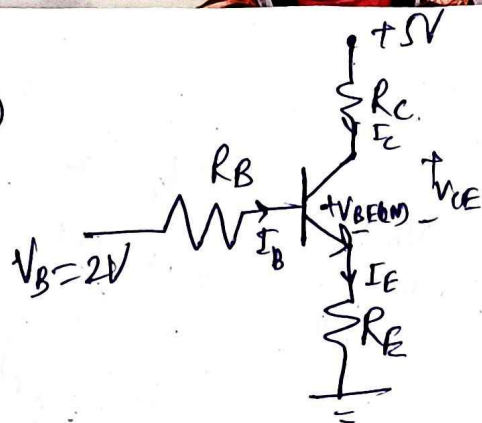 )
+5V
RC.
IC
RB
+VBE(ON) -
+
VCE
IB
VB=2V
IE
RE